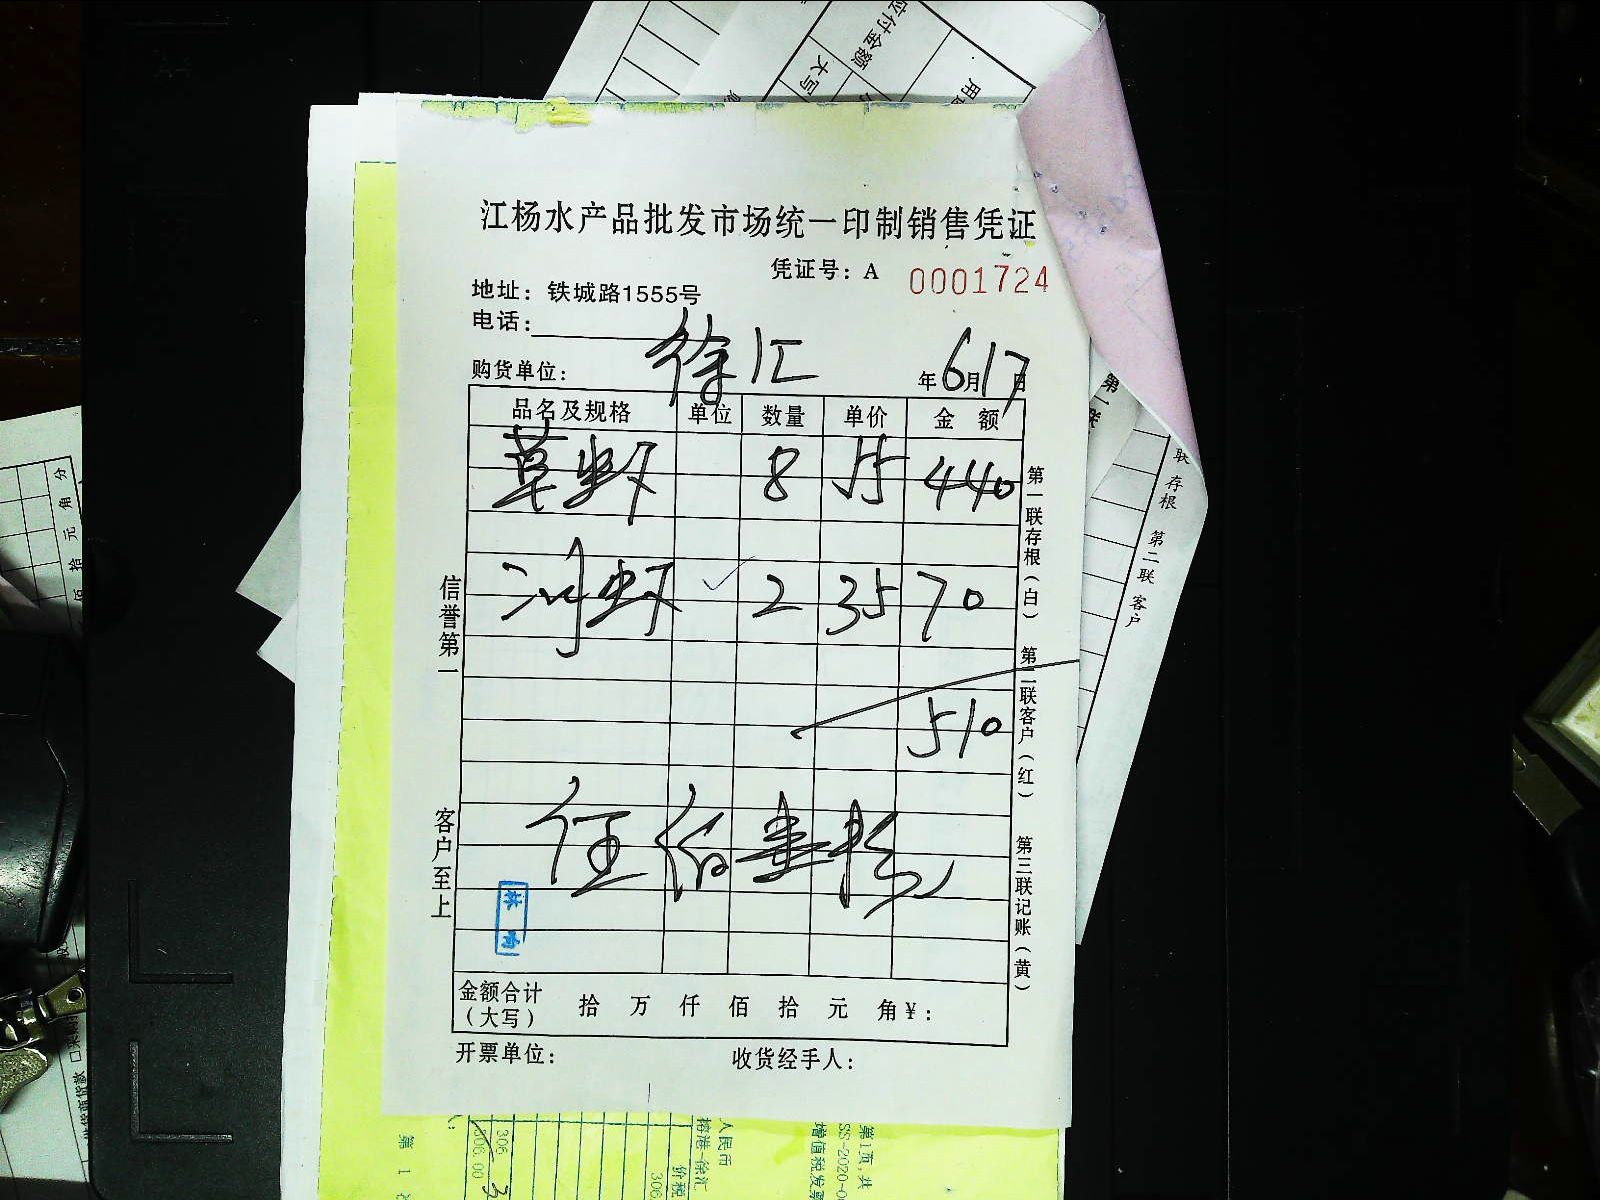 应付金额
大写
江杨水产品批发市场统一印制销售凭证
凭证号：A 0001724
地址：铁城路1555号
电话：
购货单位： 徐汇 年6月17日
品名及规格 单位 数量 单价 金额
草虾 8 55 440
河虾 2 35 70
510
伍佰壹拾
林
金额合计（大写） 拾 万 仟 佰 拾 元 角 ¥：
开票单位： 收货经手人：
信誉第一
客户至上
第一联存根（白） 第二联客户（红） 第三联记账（黄）
第一联
联存根 第二联 客户
佰 拾 元 角 分
人民币
价税
306
306.00
306
增值税发票
第1页，共
第 1